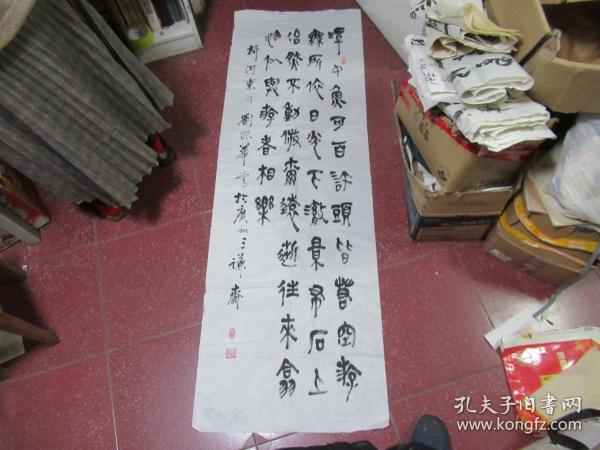 潭中魚可百許頭皆若空游
無所依日光下澈景布石上
佁然不動俶爾遠逝往來翕
忽似與游者相樂
柳河東句 劉華書於廣州三謙齋
孔夫子旧书网
www.kongfz.com